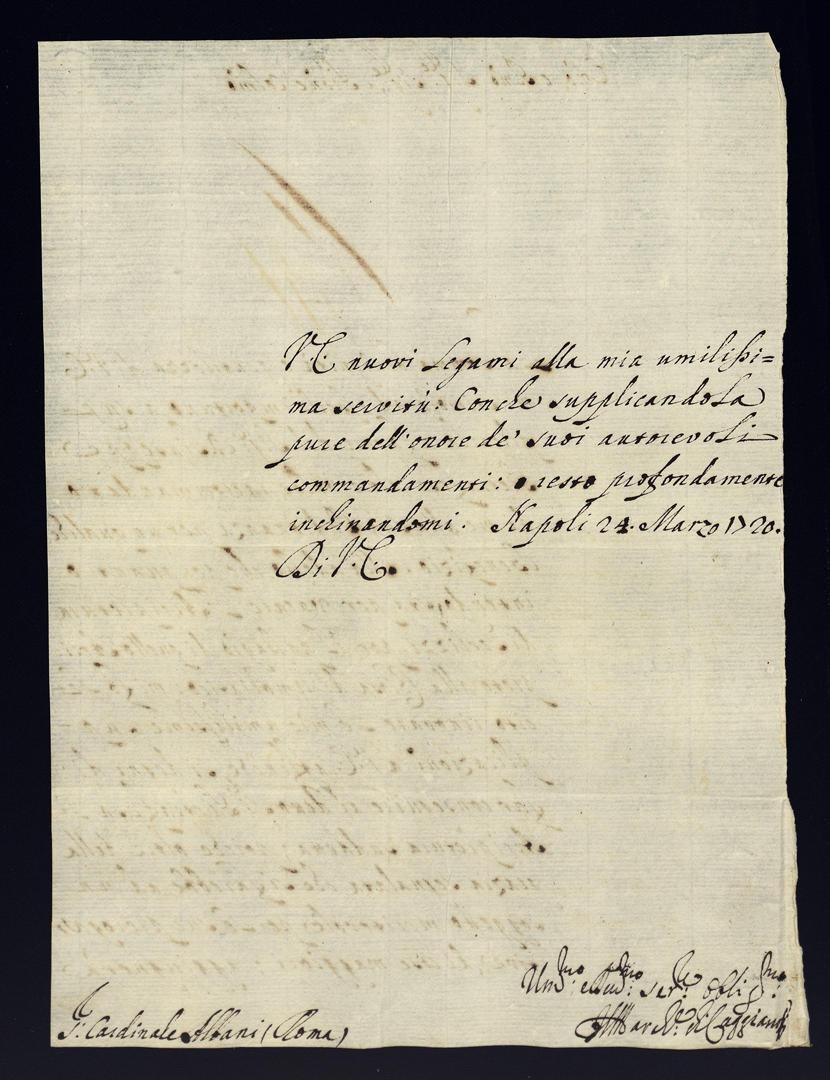 V.E. nuovi Legami alla mia umilissi=
ma servitù. Conche supplicandoLa
pure dell'onore de' suoi autorevoli
commandamenti: resto profondamente
inchinandomi. Napoli 24. Marzo 1720.
Di V.E.
Um.mo e Dev.mo ser.re Obli.mo
Il Mar.
S.r Cardinale Albani (Roma)